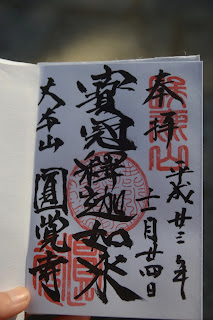 奉拝
平成廿三年
十一月廿四日
寶冠釋迦如来
大本山
圓覺寺